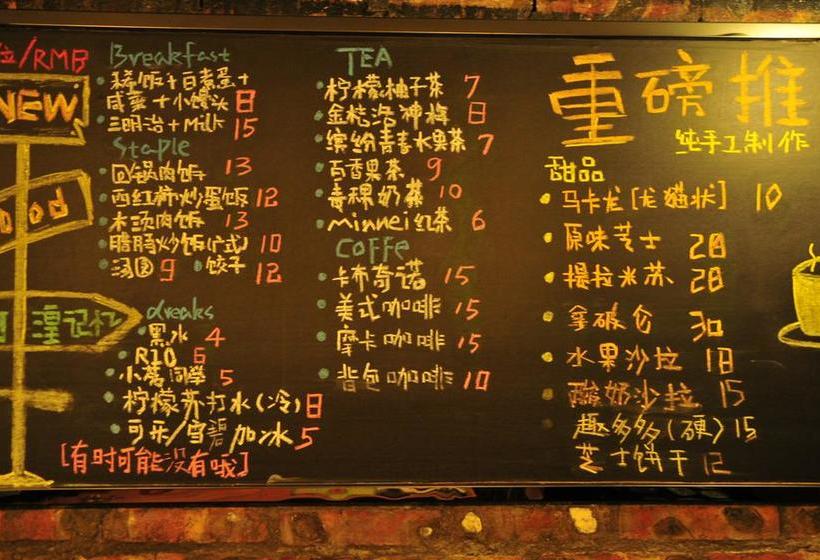 位/RMB
NEW
ood
湟记忆
Breakfast
稀饭+白煮蛋+
咸菜+小馒头 8
三明治+Milk 15
Staple
回锅肉饭 13
西红柿炒蛋饭 12
木须肉饭 13
腊肠炒饭(广式) 10
汤圆 9 饺子 12
dreaks
黑水 4
RIO 6
小茗同学 5
柠檬苏打水(冷) 8
可乐/雪碧 加冰 5
[有时可能没有哦]
TEA
柠檬柚子茶 7
金桔洛神梅 8
缤纷青春水果茶 7
百香果茶 9
青稞奶茶 10
minnei红茶 6
COFFe
卡布奇诺 15
美式咖啡 15
摩卡咖啡 15
背包咖啡 10
重磅推
纯手工制作
甜品
马卡龙[龙猫状] 10
原味芝士 28
提拉米苏 28
拿破仑 30
水果沙拉 18
酸奶沙拉 15
趣多多(硬) 15
芝士饼干 12